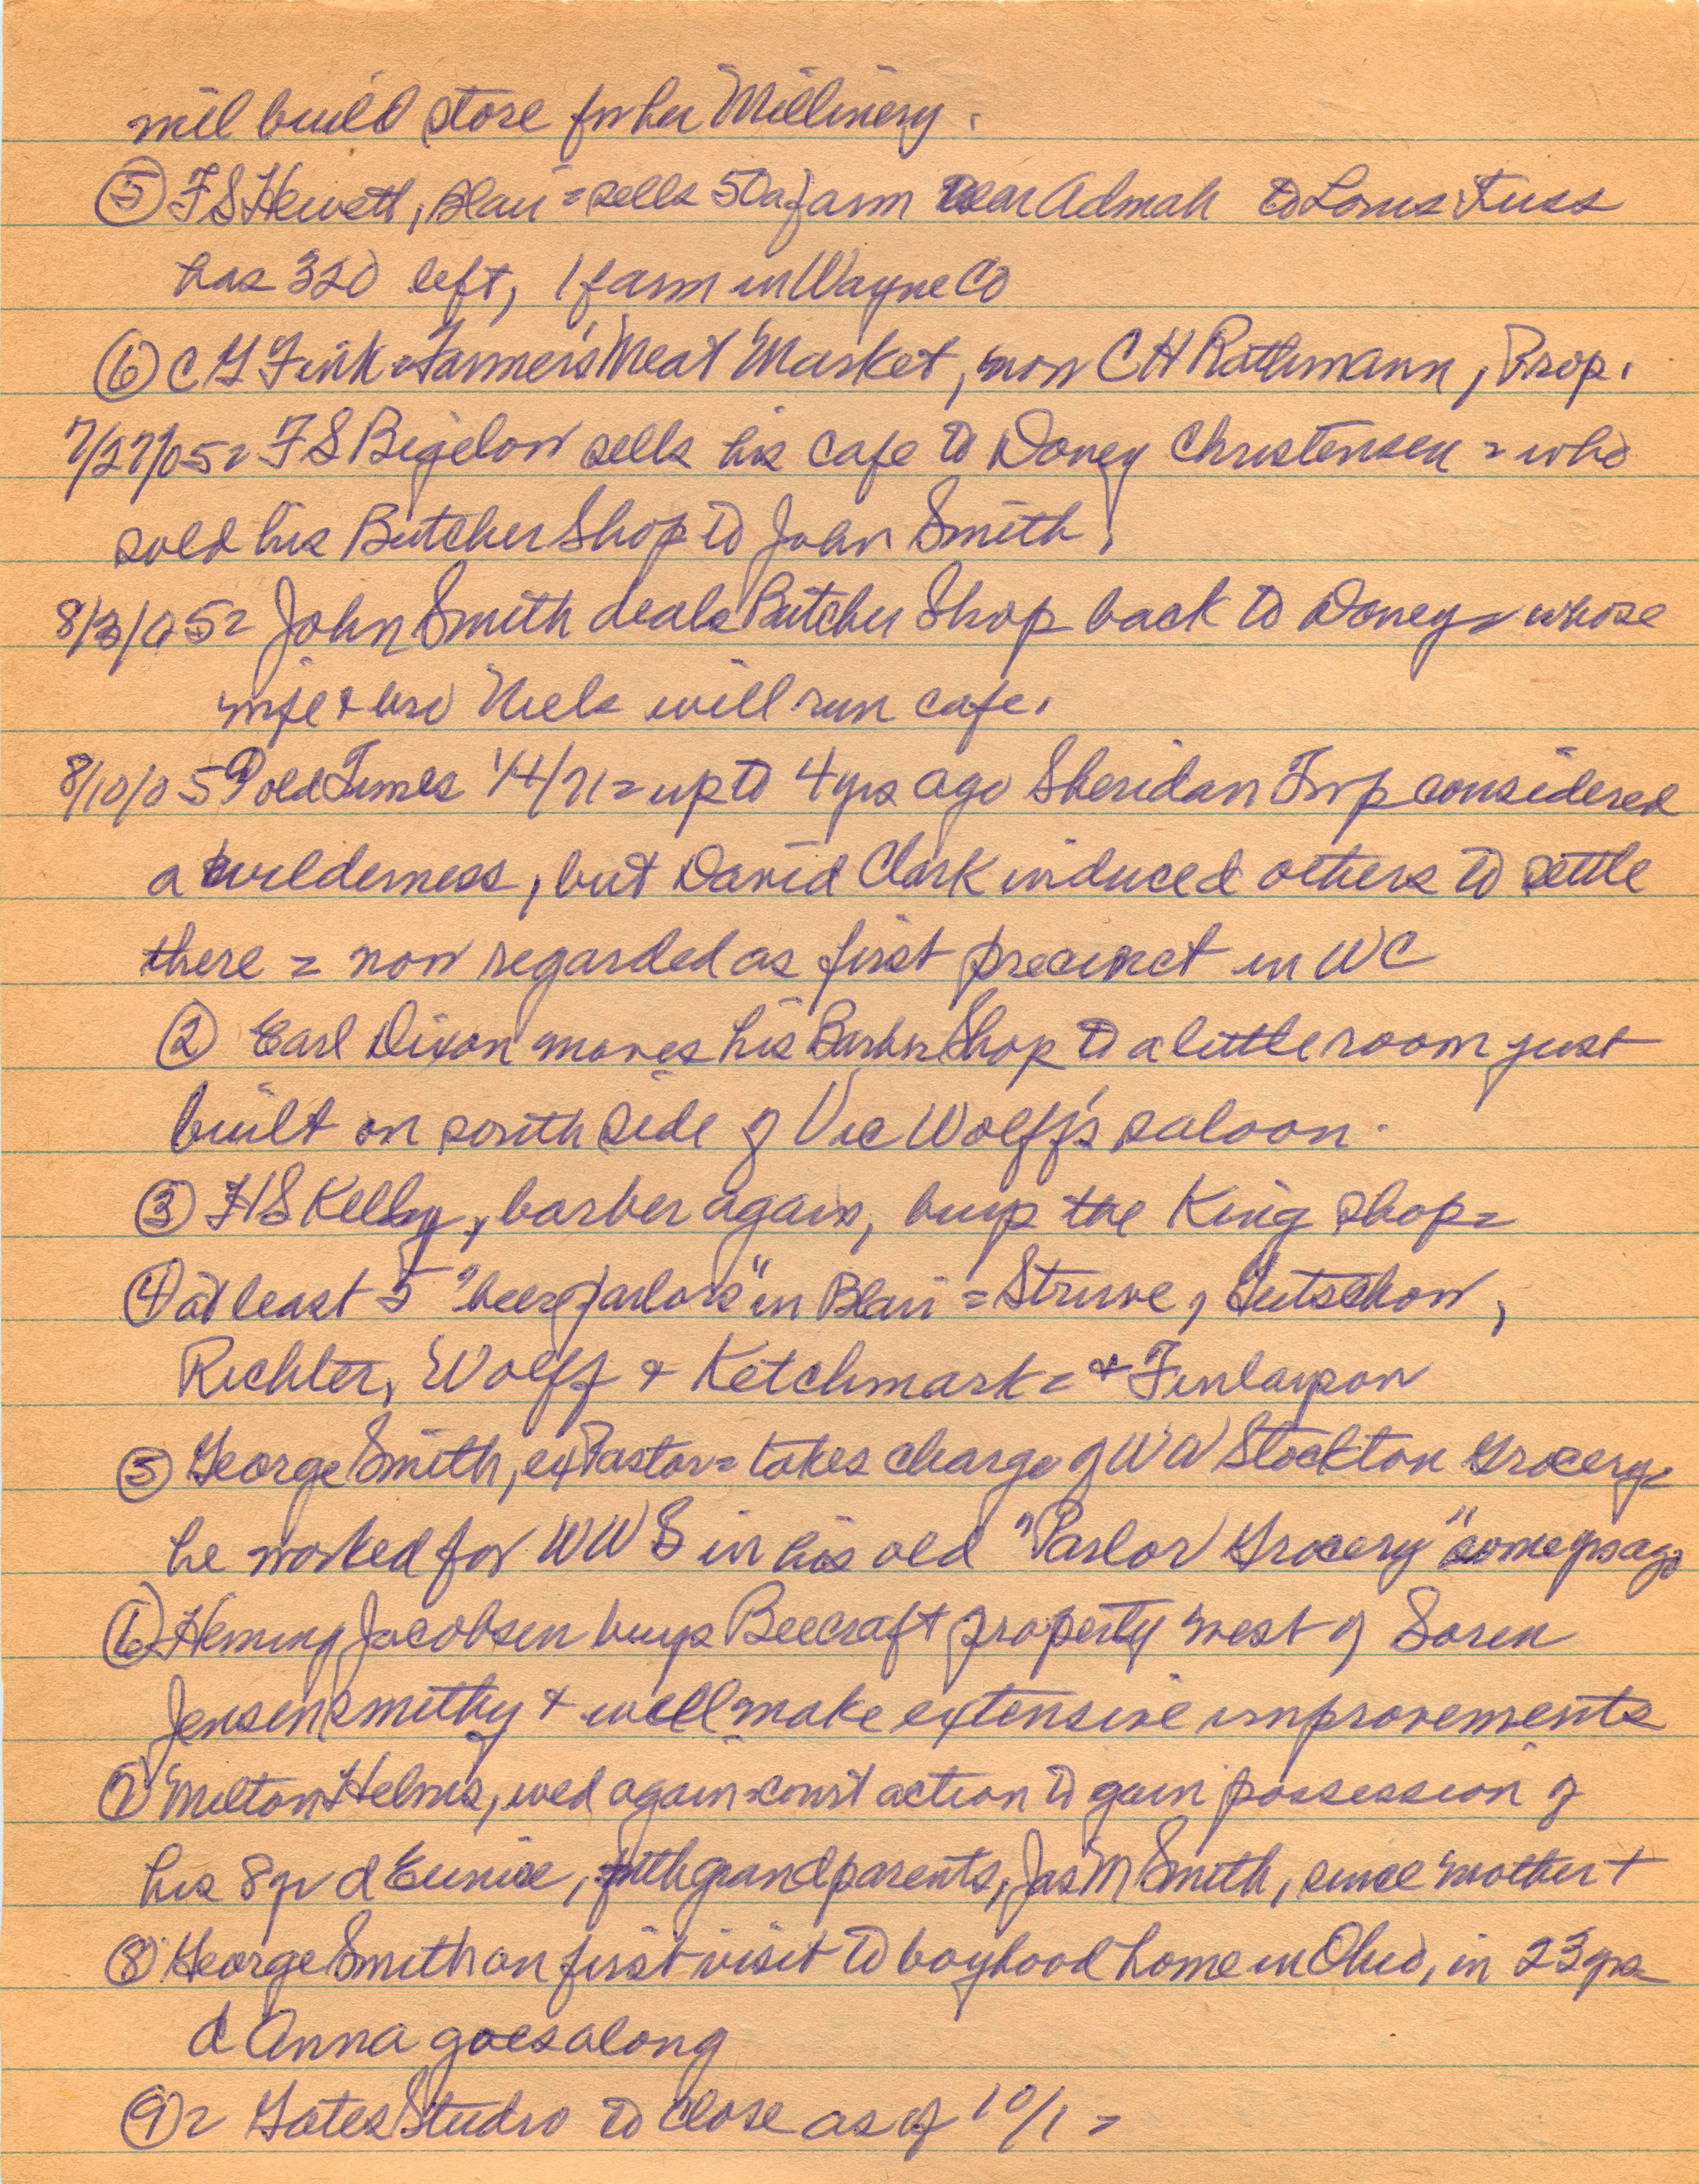 will build store for her Millinery.
⑤ F S Hewett, Blair = sells 50a farm near Admah to Louis Fuss
has 320 left, 1 farm in Wayne Co
⑥ C G Fink = Farmer's Meat Market, now C H Rathmann, Prop.
7/27/05 = F S Bigelow sells his cafe to Doney Christensen = who
sold his Butcher Shop to John Smith.
8/3/05 = John Smith deals Butcher Shop back to Doney = whose
wife & bro Niels will run cafe.
8/10/05 old Times 1/4/71 = up to 4 yrs ago Sheridan Twp considered
a wilderness, but David Clark induced others to settle
there = now regarded as first precinct in WC
② Earl Dixon moves his Barber Shop to a little room just
built on south side of Vic Wolff's saloon.
③ H S Kelly, barber again, buys the King shop =
④ at least 5 "beer parlors" in Blair = Struve, Gutschow,
Richter, Wolff & Ketchmark = & Finlayson
⑤ George Smith, ex Pastor = takes charge of W W Stockton Grocery =
he worked for WWS in his old "Parlor Grocery" some yrs ago
⑥ Heming Jacobsen buys Beecraft property west of Soren
Jensen smithy & will make extensive improvements
⑦ Milton Helms, wed again = court action to gain possession of
his 8 yr d Eunice, with grandparents, Jas M Smith, since mother +
⑧ George Smith on first visit to boyhood home in Ohio, in 23 yrs
d Anna goes along
⑨ = Gates Studio to close as of 10/1 =